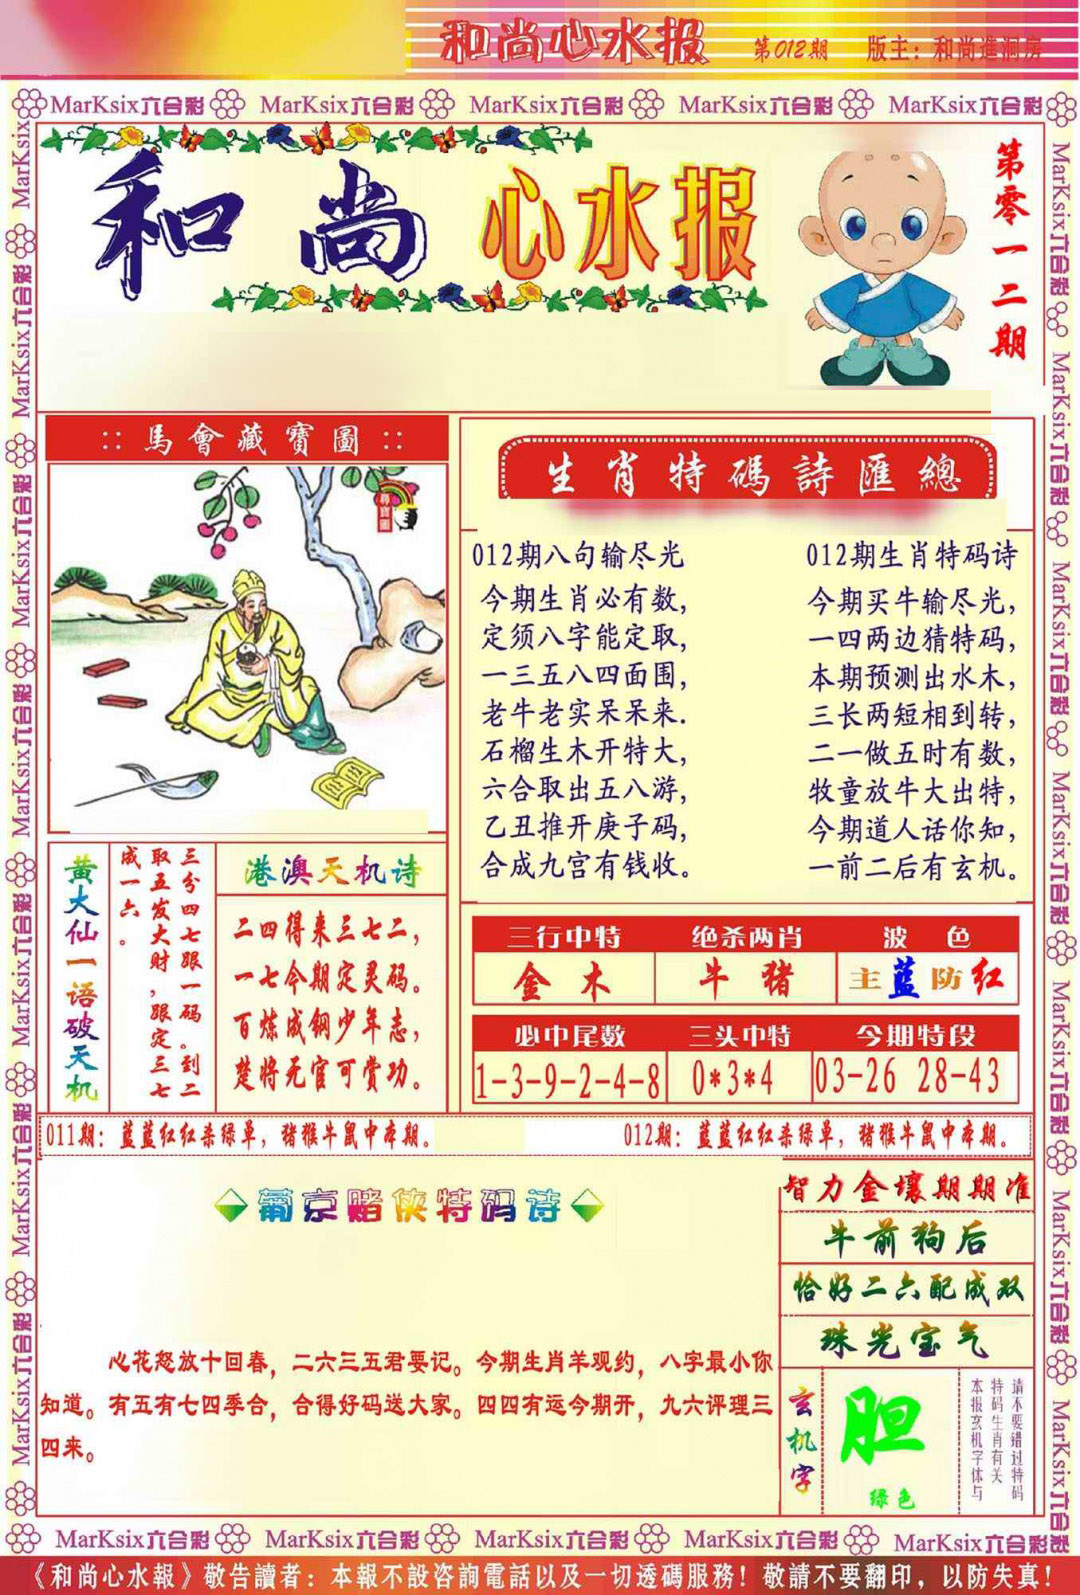 和尚心水报 第012期 版主：和尚進洞房
MarKsix六合彩 MarKsix六合彩 MarKsix六合彩 MarKsix六合彩 MarKsix六合彩
和尚 心水报
第零一二期
::馬會藏寶圖::
尋寶圖
生肖特碼詩匯總
012期八句输尽光
今期生肖必有数,
定须八字能定取,
一三五八四面围,
老牛老实呆呆来.
石榴生木开特大,
六合取出五八游,
乙丑推开庚子码,
合成九宫有钱收。
012期生肖特码诗
今期买牛输尽光,
一四两边猜特码,
本期预测出水木,
三长两短相到转,
二一做五时有数,
牧童放牛大出特,
今期道人话你知,
一前二后有玄机。
黄大仙一语破天机
三分四七跟一码。到二
取五发大财,跟定三七
成一六。
港澳天机诗
二四得来三七二,
一七今期定灵码。
百炼成钢少年志,
楚将元官可赏功。
三行中特 绝杀两肖 波色
金木 牛猪 主蓝防红
必中尾数 三头中特 今期特段
1-3-9-2-4-8 0*3*4 03-26 28-43
011期：蓝蓝红红杀绿单，猪猴牛鼠中本期。
012期：蓝蓝红红杀绿单，猪猴牛鼠中本期。
葡京赌侠特码诗
心花怒放十回春，二六三五君要记。今期生肖羊观约，八字最小你
知道。有五有七四季合，合得好码送大家。四四有运今期开，九六评理三
四来。
智力金壤期期准
牛前狗后
恰好二六配成双
珠光宝气
玄机字
胆
绿色
请不要错过特码
特码生肖有关
本报玄机字体与
MarKsix六合彩 MarKsix六合彩 MarKsix六合彩 MarKsix六合彩 MarKsix六合彩
《和尚心水報》敬告讀者：本報不設咨詢電話以及一切透碼服務！敬請不要翻印，以防失真！